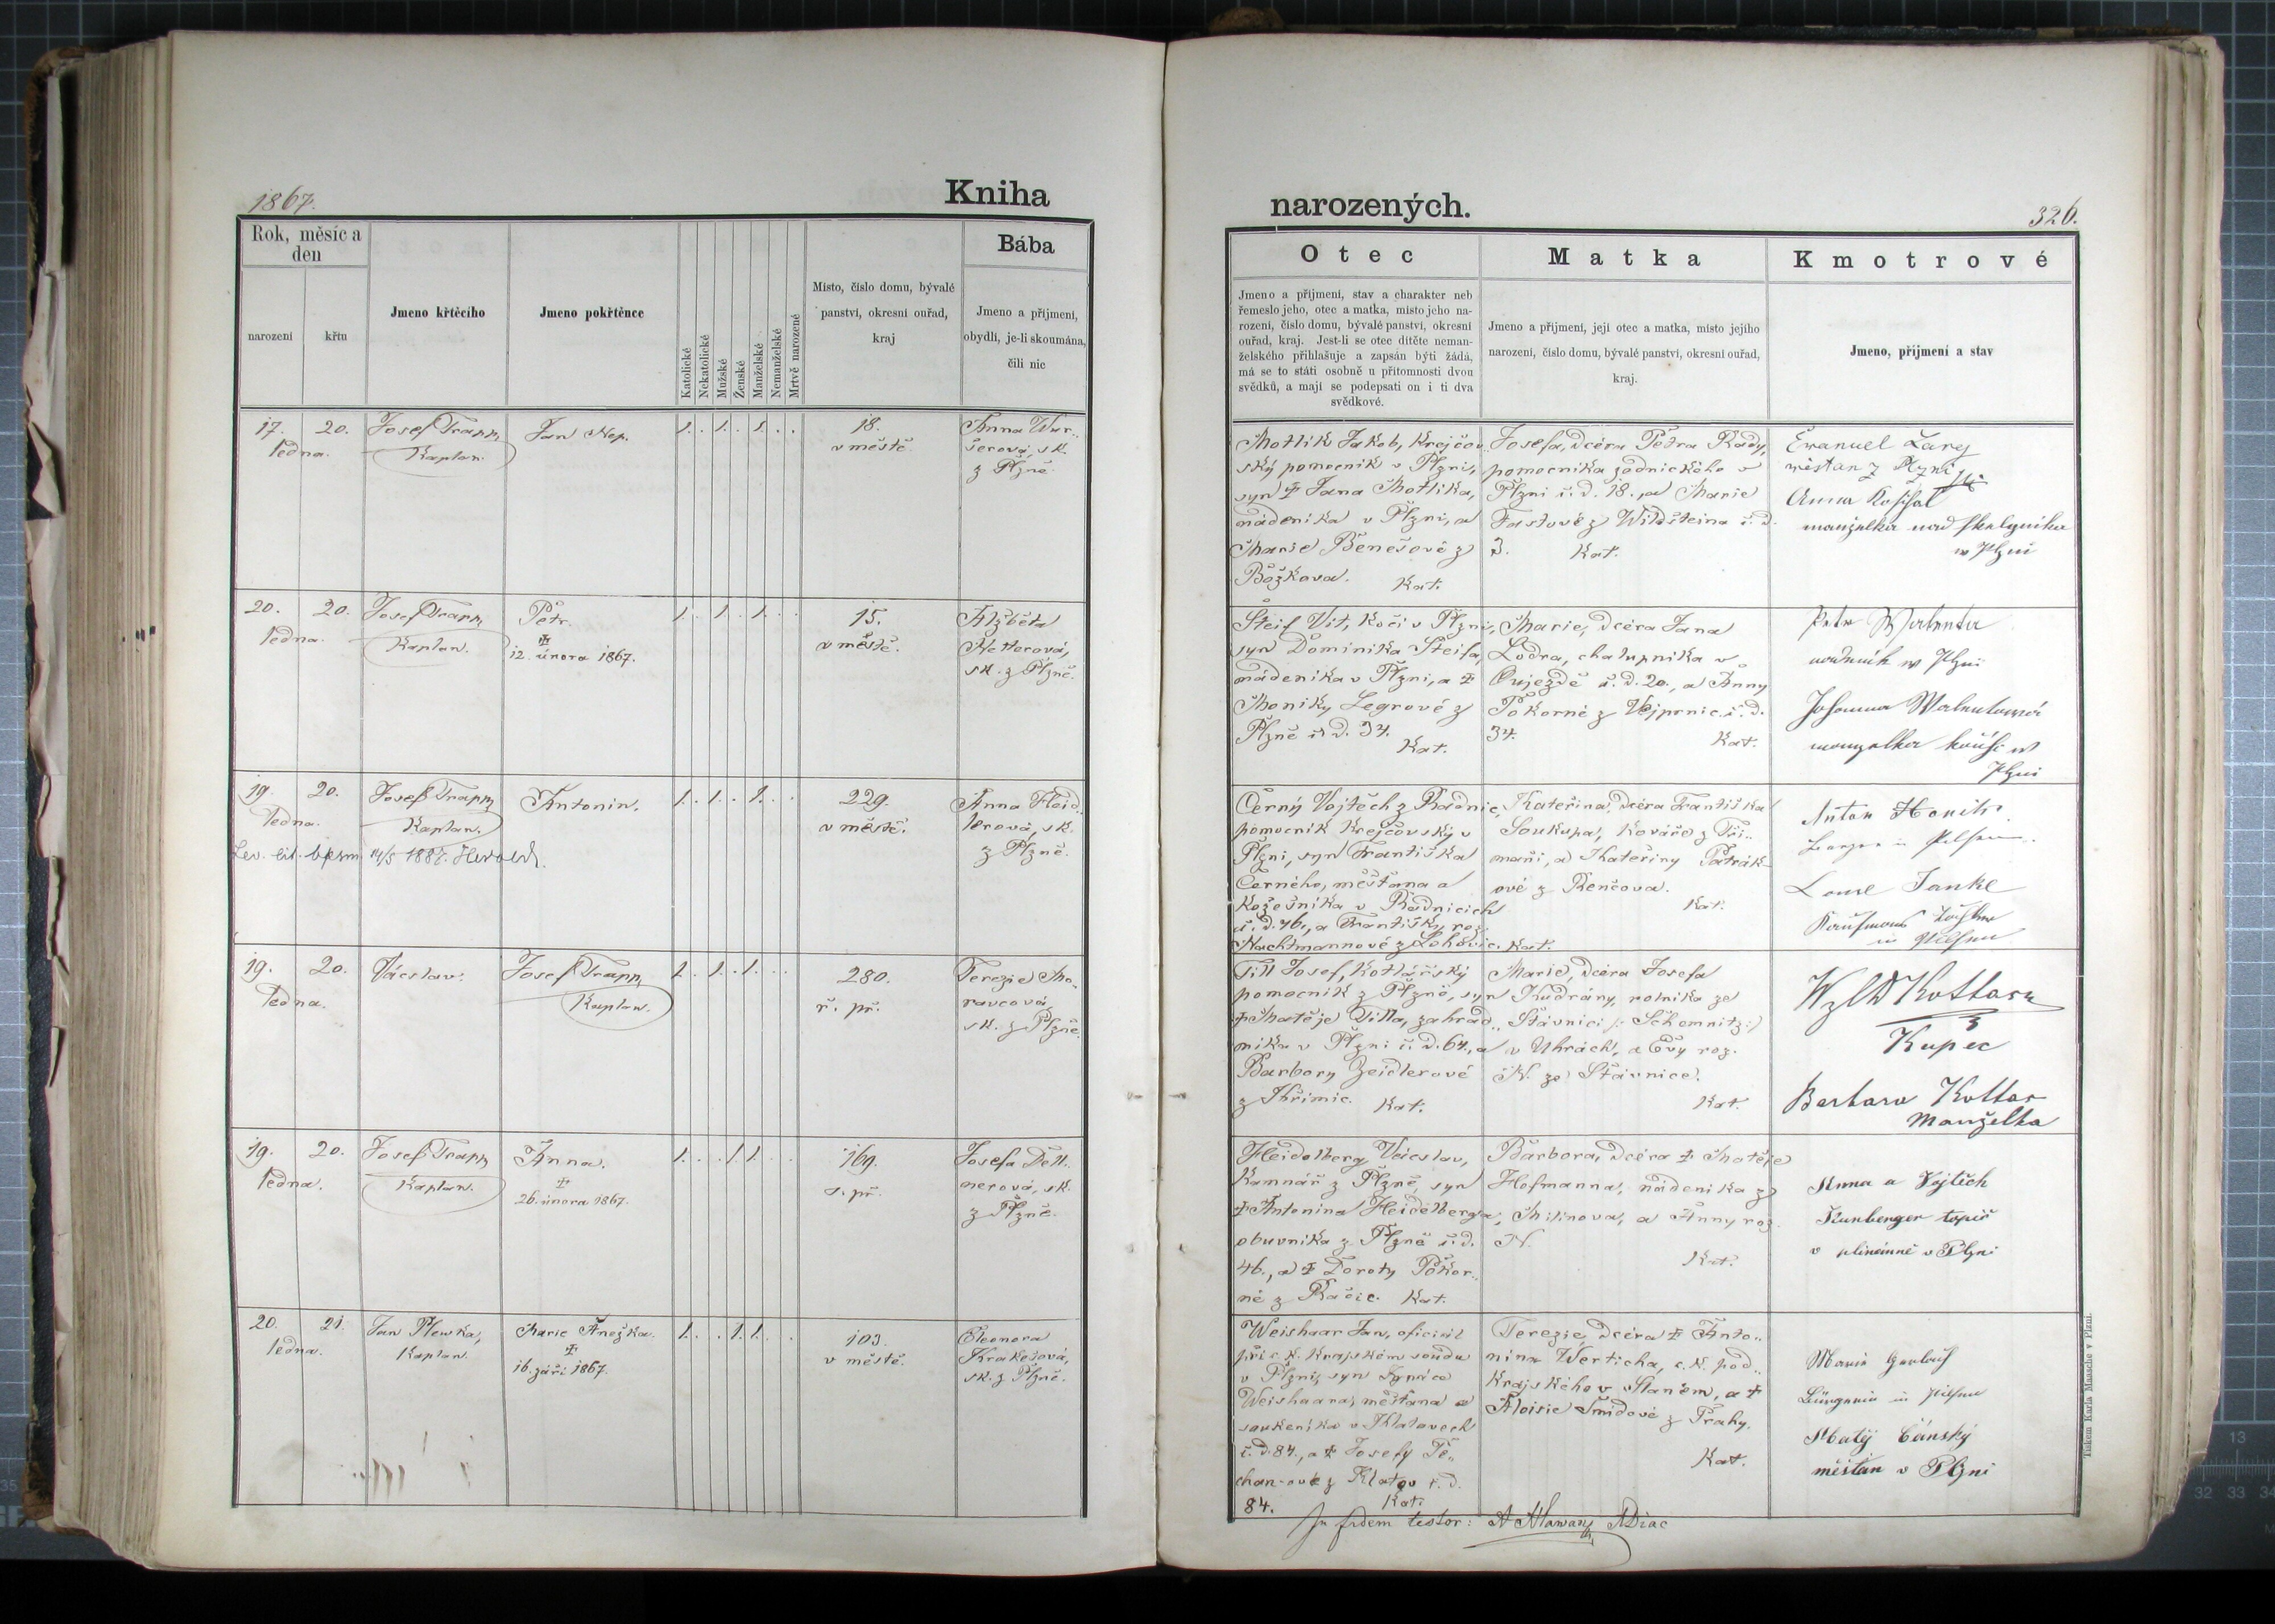 1867.
Kniha
Rok, měsíc a
den
narození
křtu
Jmeno křtěcího
Jmeno pokřtěnce
Katolické
Nekatolické
Mužské
Ženské
Manželské
Nemanželské
Mrtvě narozené
Místo, číslo domu, bývalé
panství, okresní ouřad,
kraj
Bába
Jmeno a příjmení,
obydlí, je-li skoumána,
čili nic
17. 20.
ledna.
Josef Trapp
Kaplan.
Jan Nep.
1. . 1. . 1. . .
18.
v městě.
Anna Wur..
šerová, sk.
z Plzně.
20. 20.
ledna.
Josef Trapp
Kaplan.
Petr.
12. února 1867.
1. . 1. . 1. . .
15.
v městě.
Alžběta
Netterová,
sk. z Plzně.
19. 20.
ledna.
Josef Trapp
Kaplan.
Antonín.
1. . 1. . 1. . .
229.
v městě.
Anna Heid..
lerová, sk.
z Plzně.
Lev. lit. bapsm. 14/5 1887.
19. 20.
ledna.
Václav.
Josef Trapp
Kaplan.
1. . 1. . 1. . .
280.
ř. př.
Terezie Mo..
ravcová,
sk. z Plzně.
19. 20.
ledna.
Josef Trapp
Kaplan.
Anna.
26. února 1867.
1. . . 1. 1. . .
169.
s. př.
Josefa Dell..
nerová, sk.
z Plzně.
20. 21.
ledna.
Jan Plewka,
Kaplan.
Marie Anežka.
16. září 1867.
1. . . 1. 1. . .
103.
v městě.
Eleonora
Krakešová,
sk. z Plzně.
narozených.
326.
Otec
Jmeno a příjmení, stav a charakter neb
řemeslo jeho, otec a matka, místo jeho na-
rození, číslo domu, bývalé panství, okresní
ouřad, kraj. Jest-li se otec dítěte neman-
želského přihlašuje a zapsán býti žádá,
má se to státi osobně u přítomnosti dvou
svědků, a mají se podepsati on i ti dva
svědkové.
Matka
Jmeno a příjmení, její otec a matka, místo jejího
narození, číslo domu, bývalé panství, okresní ouřad,
kraj.
Kmotrové
Jmeno, příjmení a stav
Motlík Jakob, krejčov..
ský pomocník v Plzni,
syn ‡ Jana Motlíka,
nádeníka v Plzni, a
Marie Benešové z
Božkova. Kat.
Josefa, dcéra Petra Rady,
pomocníka zednického v
Plzni č. d. 18., a Marie
Fastové z Wildšteina č. d.
3. Kat.
Emanuel
měštan z Plzni
Anna
manželka
w Plzni
Šteif Vít, kočí v Plzni,
syn Dominika Šteifa,
nádeníka v Plzni, a ‡
Moniky Legrové z
Plzně č. d. 34. Kat.
Marie, dcéra Jana
Lodra, chalupníka v
Oujezdě č. d. 20., a Anny
Pokorné z Vejprnic č. d.
34. Kat.
Petr Walenta
w Plzni
Johanna Walentowá
manzelka w
Plzni
Černý Vojtěch z Radnic,
pomocník krejčovský v
Plzni, syn Františka
Černého, měšťana a
kožešníka v Radnicích
č. d. 46., a Františky, roz.
Nachtmannové z Lohovic. Kat.
Kateřina, dcéra Františka
Soukupa, kováře z Tři..
mani, a Kateřiny Patrák..
ové z Renčova.
Kat.
Anton Honik
in Pilsen
Janke
Kaufmanns
in Pilsen
Till Josef, kotlářský
pomocník z Plzně, syn
‡ Matěje Villa, zahrad..
níka v Plzni č. d. 64., a
Barbory Zeidlerové
z Křimic. Kat.
Marie, dcéra Josefa
Kudrány, rolníka ze
Štávnici /: Schemnitz:/
v Uhrách, a Evy roz.
N. ze Štávnice.
Kat.
Kottasz
Kupec
Barbara Kottas
Manželka
Heidelberg Václav,
kamnář z Plzně, syn
‡ Antonína Heidelberga,
obuvníka z Plzně č. d.
46., a ‡ Doroty Pokor..
né z Račic. Kat.
Barbora, dcéra ‡ Matěje
Hofmanna, nádeníka z
Milínova, a Anny roz.
N.
Kat.
Anna a Vojtěch
Nunberger topič
v plinárně v Plzni
Weishaar Jan, oficiál
při c. k. krajském soudu
v Plzni, syn Ignáce
Weishaara, měšťana a
soukeníka v Klatovech
č. d. 84., a ‡ Josefy Pe..
chan-ové z Klatov č. d.
84. Kat.
Terezie, dcéra ‡ Anto..
nína Werticha, c. k. pod..
krajského v Slaném, a ‡
Aloisie Šmidové z Prahy.
Kat.
Marie Gerlach
Bürgerin in Pilsen
Matěj Cánský
měštan v Plzni
In fidem testor:
Tiskem Karla Maasche v Plzni.